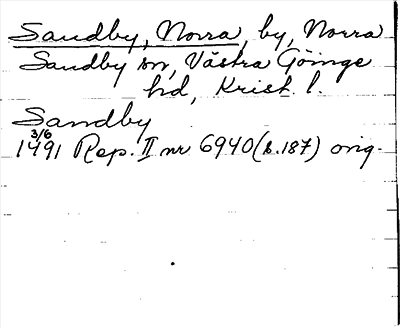 Sandby, Norra, by, Norra
Sandby sn, Västra Göinge
hd, Krist. l.
Sandby
3/6
1491 Rep. II nr 6940 (s.187) orig.